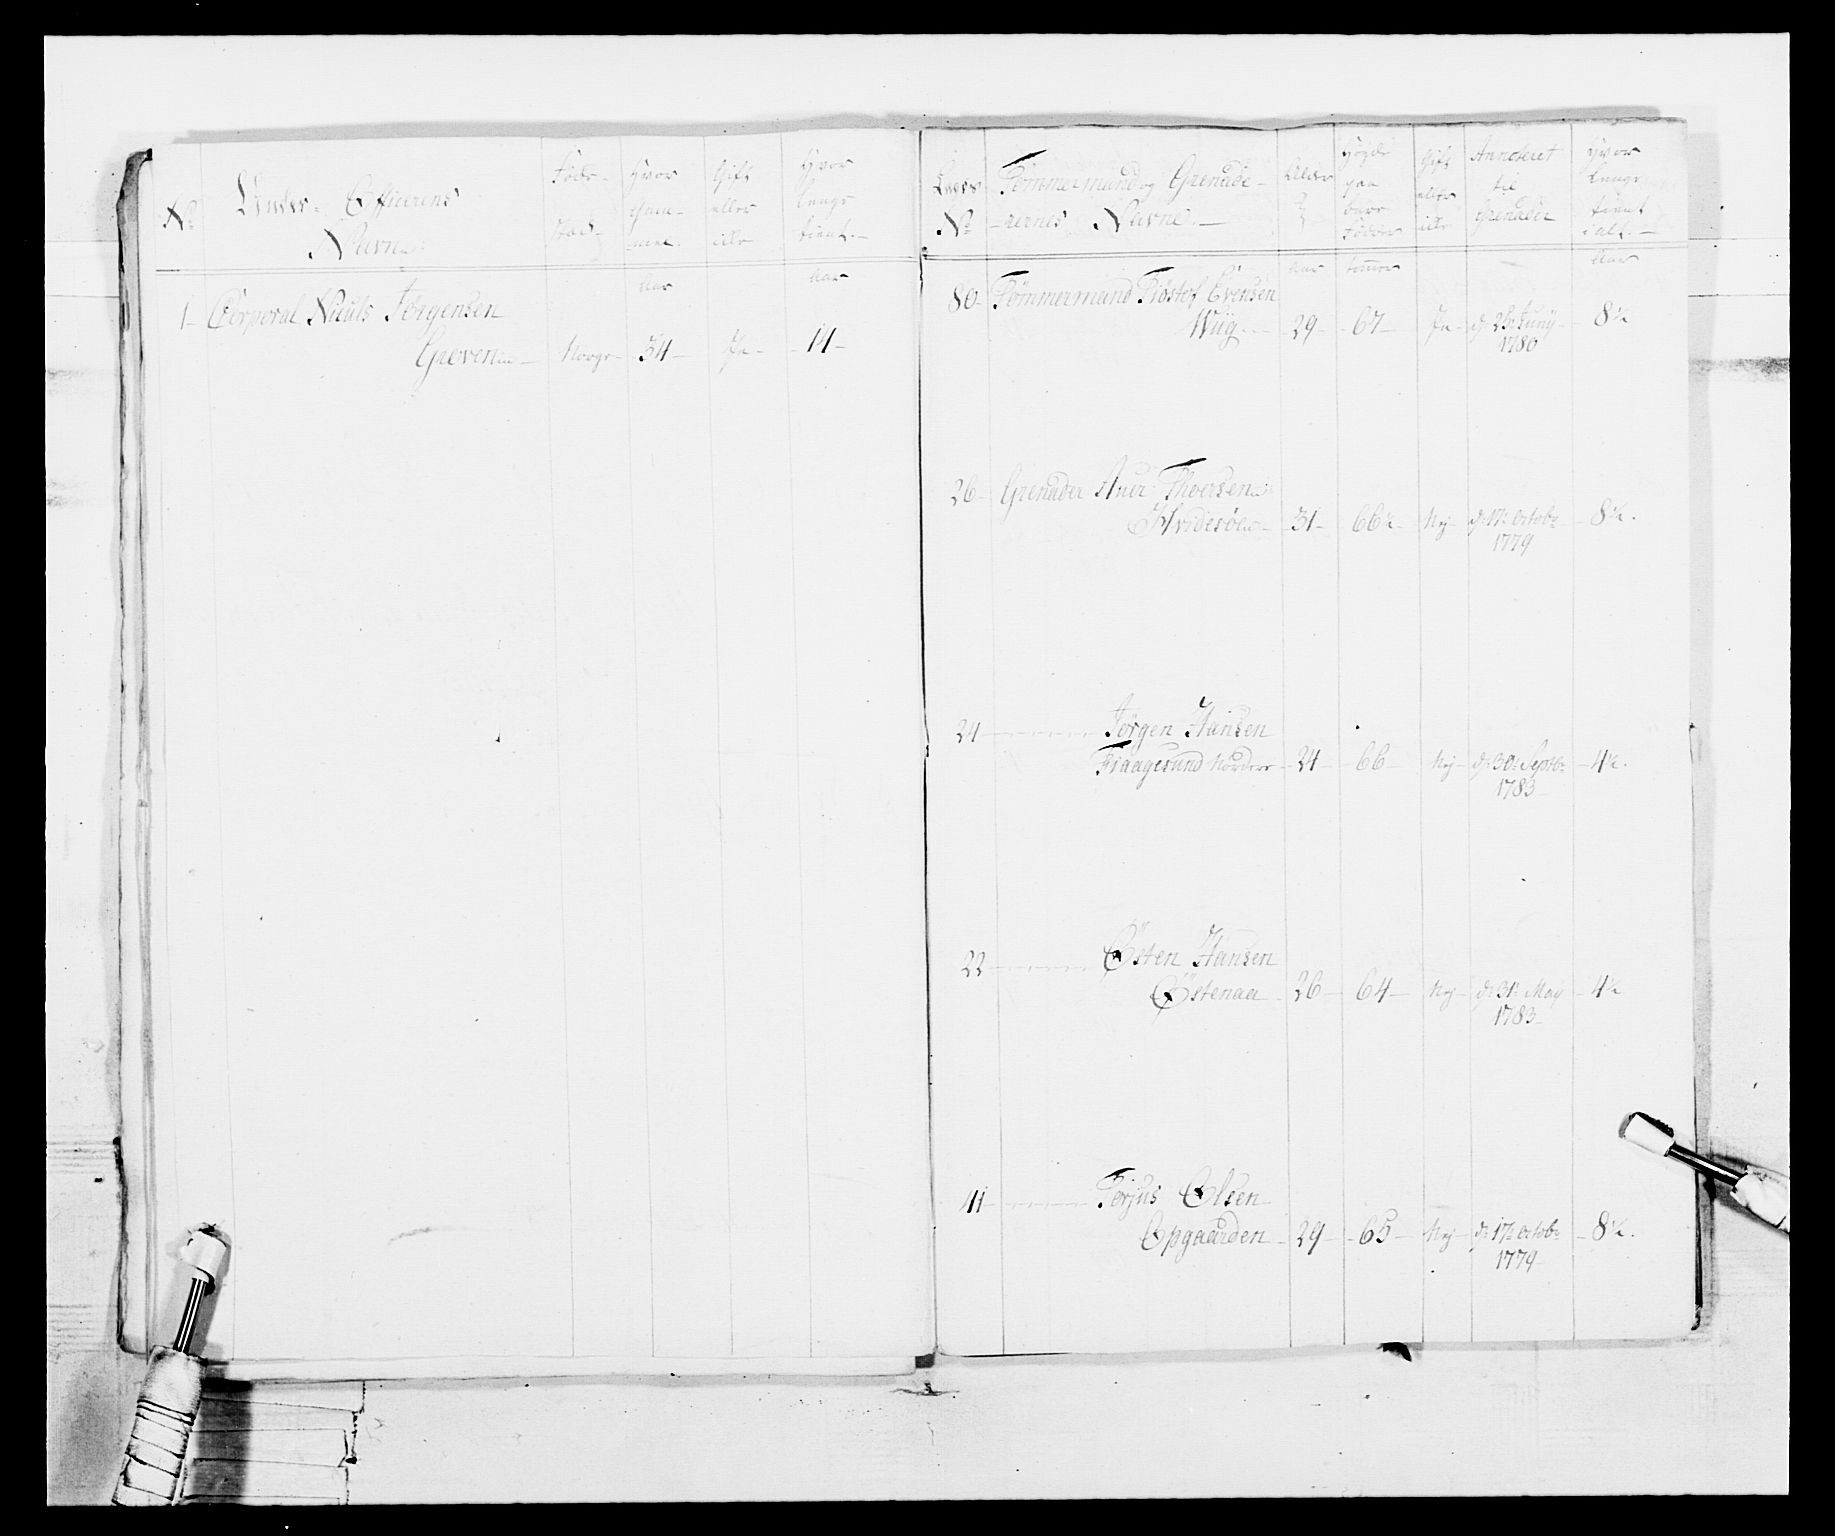 No
Under- Officerens
Navne
Føde-
stæd-
Hvor
gam-
mel.
Gift
eller
ikke
Hvor
længe
tient.-
Aar
Aar
1- Corporal Niculs Jørgensen
Greven - Norge- 34- Ja- - 14-
Læges
No
Tømmermænd og Grenade-
-rernes Navne.-
Alder
Høyde
paa
bare
Fødder
Gift
eller
ikke
Annoteret
til
Grenader
Hvor
længe
tient
i alt.-
Aar
tommer
Aar
80- Tømmermand Tiøstof Evensen
Wiig - 29- -67- Ja- d: 23 Juny- 8½
1780
26- Grenader Aner Thversen
Hvidesøe - 31- 66½- Nej- d: 17: Octobr - 8½.
1779
24 - - - - - Jørgen Hansen
Kraagesund Nordere - 24- -66- Nej- d: 30: Septbr - 4½.
1783-
22 - - - - - Østen Hansen
Østenaa - 26- 64- Nej- d: 31: May - 4½
1783-
41- - - - - Terjus Olsen
Opgaarden - 29- -65- Nej- d: 17: Octobr - 8½.
1779-